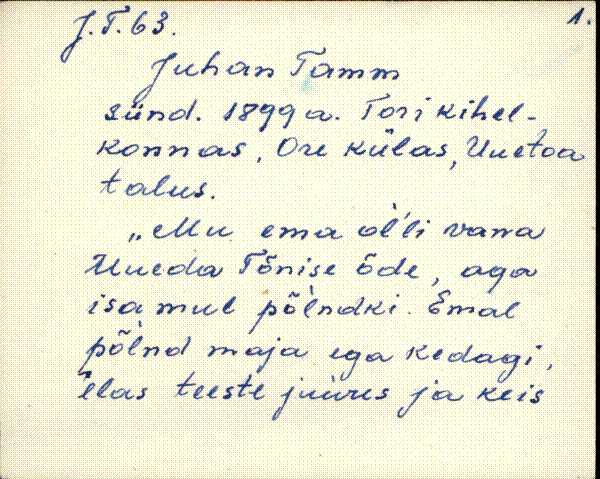 J.T.63.
1.
Juhan Tamm
sünd. 1899 a. Tori kihel-
konnas, Ore külas, Uuetoa
talus.
„Mu ema òl'li vana
Uueda Tõnise õde, aga
isa mul põ̀lndki. Emal
põ̀lnd maja ega kedagi,
èlas teeste juures ja keis